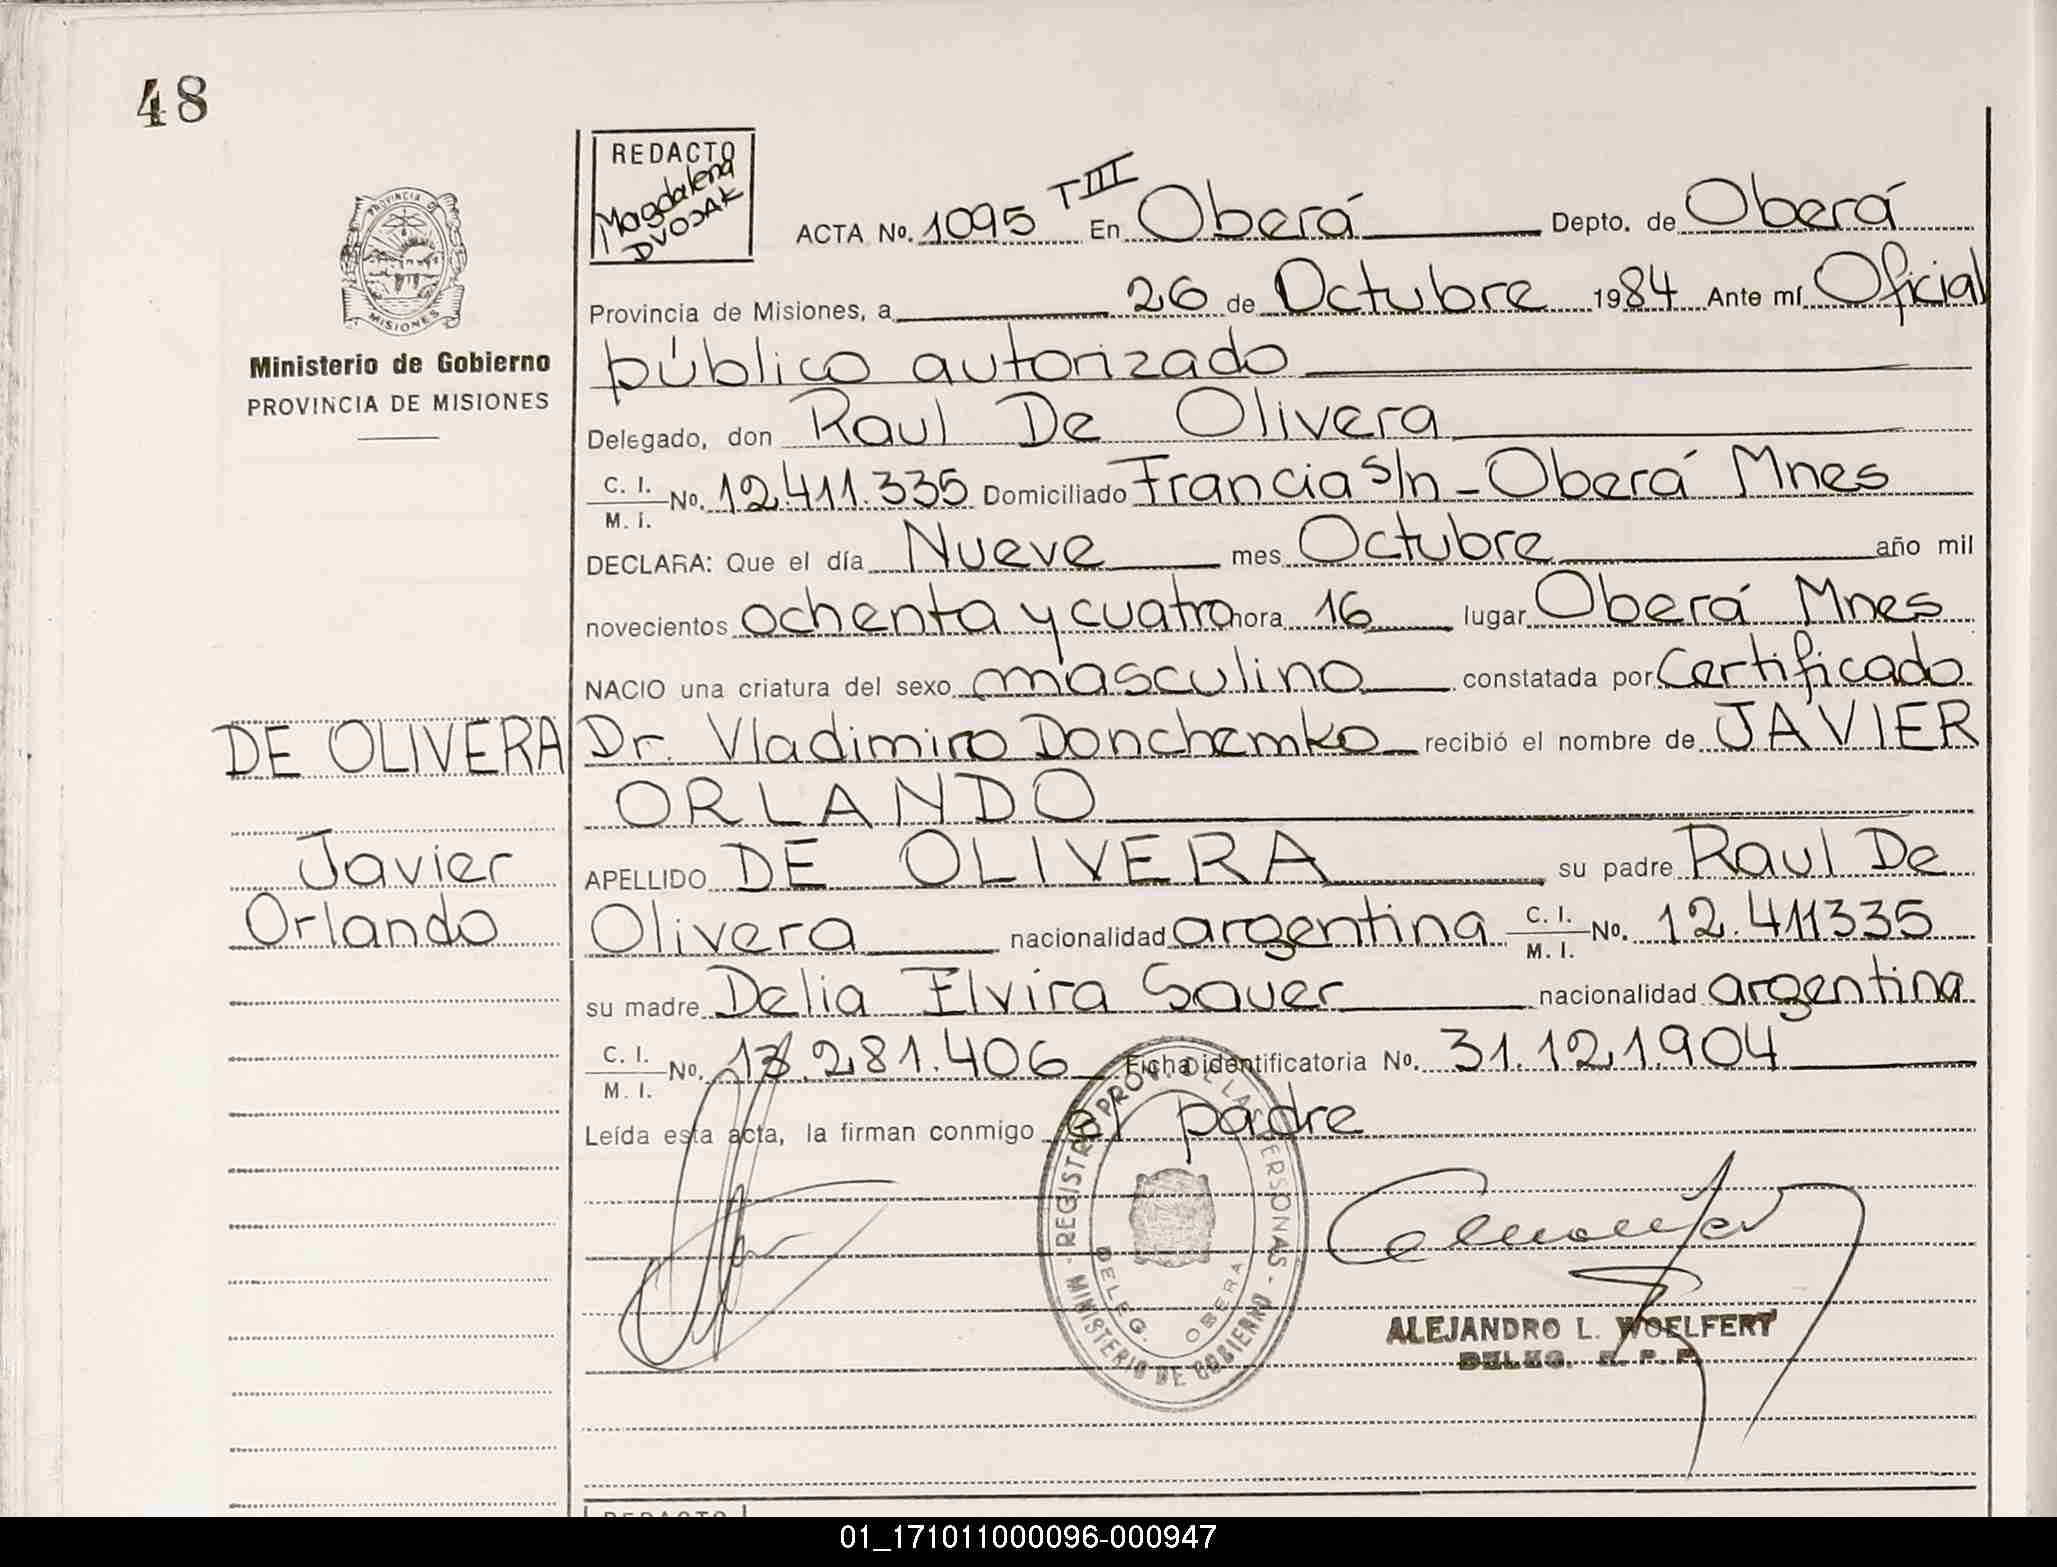 48
REDACTO
Magdalena
DVOJAK
PROVINCIA DE
MISIONES
Ministerio de Gobierno
PROVINCIA DE MISIONES
ACTA No. 1095 T III En Oberá Depto. de Oberá
Provincia de Misiones, a 26 de Octubre 1984 Ante mí Oficial
público autorizado
Delegado, don Raul De Olivera
C. I. / M. I. No. 12.411.335 Domiciliado Francia s/n - Oberá Mnes
DECLARA: Que el día Nueve mes Octubre año mil
novecientos ochenta y cuatro hora 16 lugar Oberá Mnes
NACIO una criatura del sexo masculino constatada por Certificado
DE OLIVERA
Dr. Vladimiro Donchemko recibió el nombre de JAVIER
ORLANDO
Javier
APELLIDO DE OLIVERA su padre Raul De
Orlando
Olivera nacionalidad argentina C. I. / M. I. No. 12.411335
su madre Delia Elvira Sauer nacionalidad argentina
C. I. / M. I. No. 13.281.406 Ficha identificatoria No. 31.121.904
Leída esta acta, la firman conmigo el padre
REGISTRO PROV. DE LAS PERSONAS - MINISTERIO DE GOBIERNO -
DELEG. OBERA
ALEJANDRO L. WOELFERT
DELEG. R. P. P.
REDACTO
01_171011000096-000947